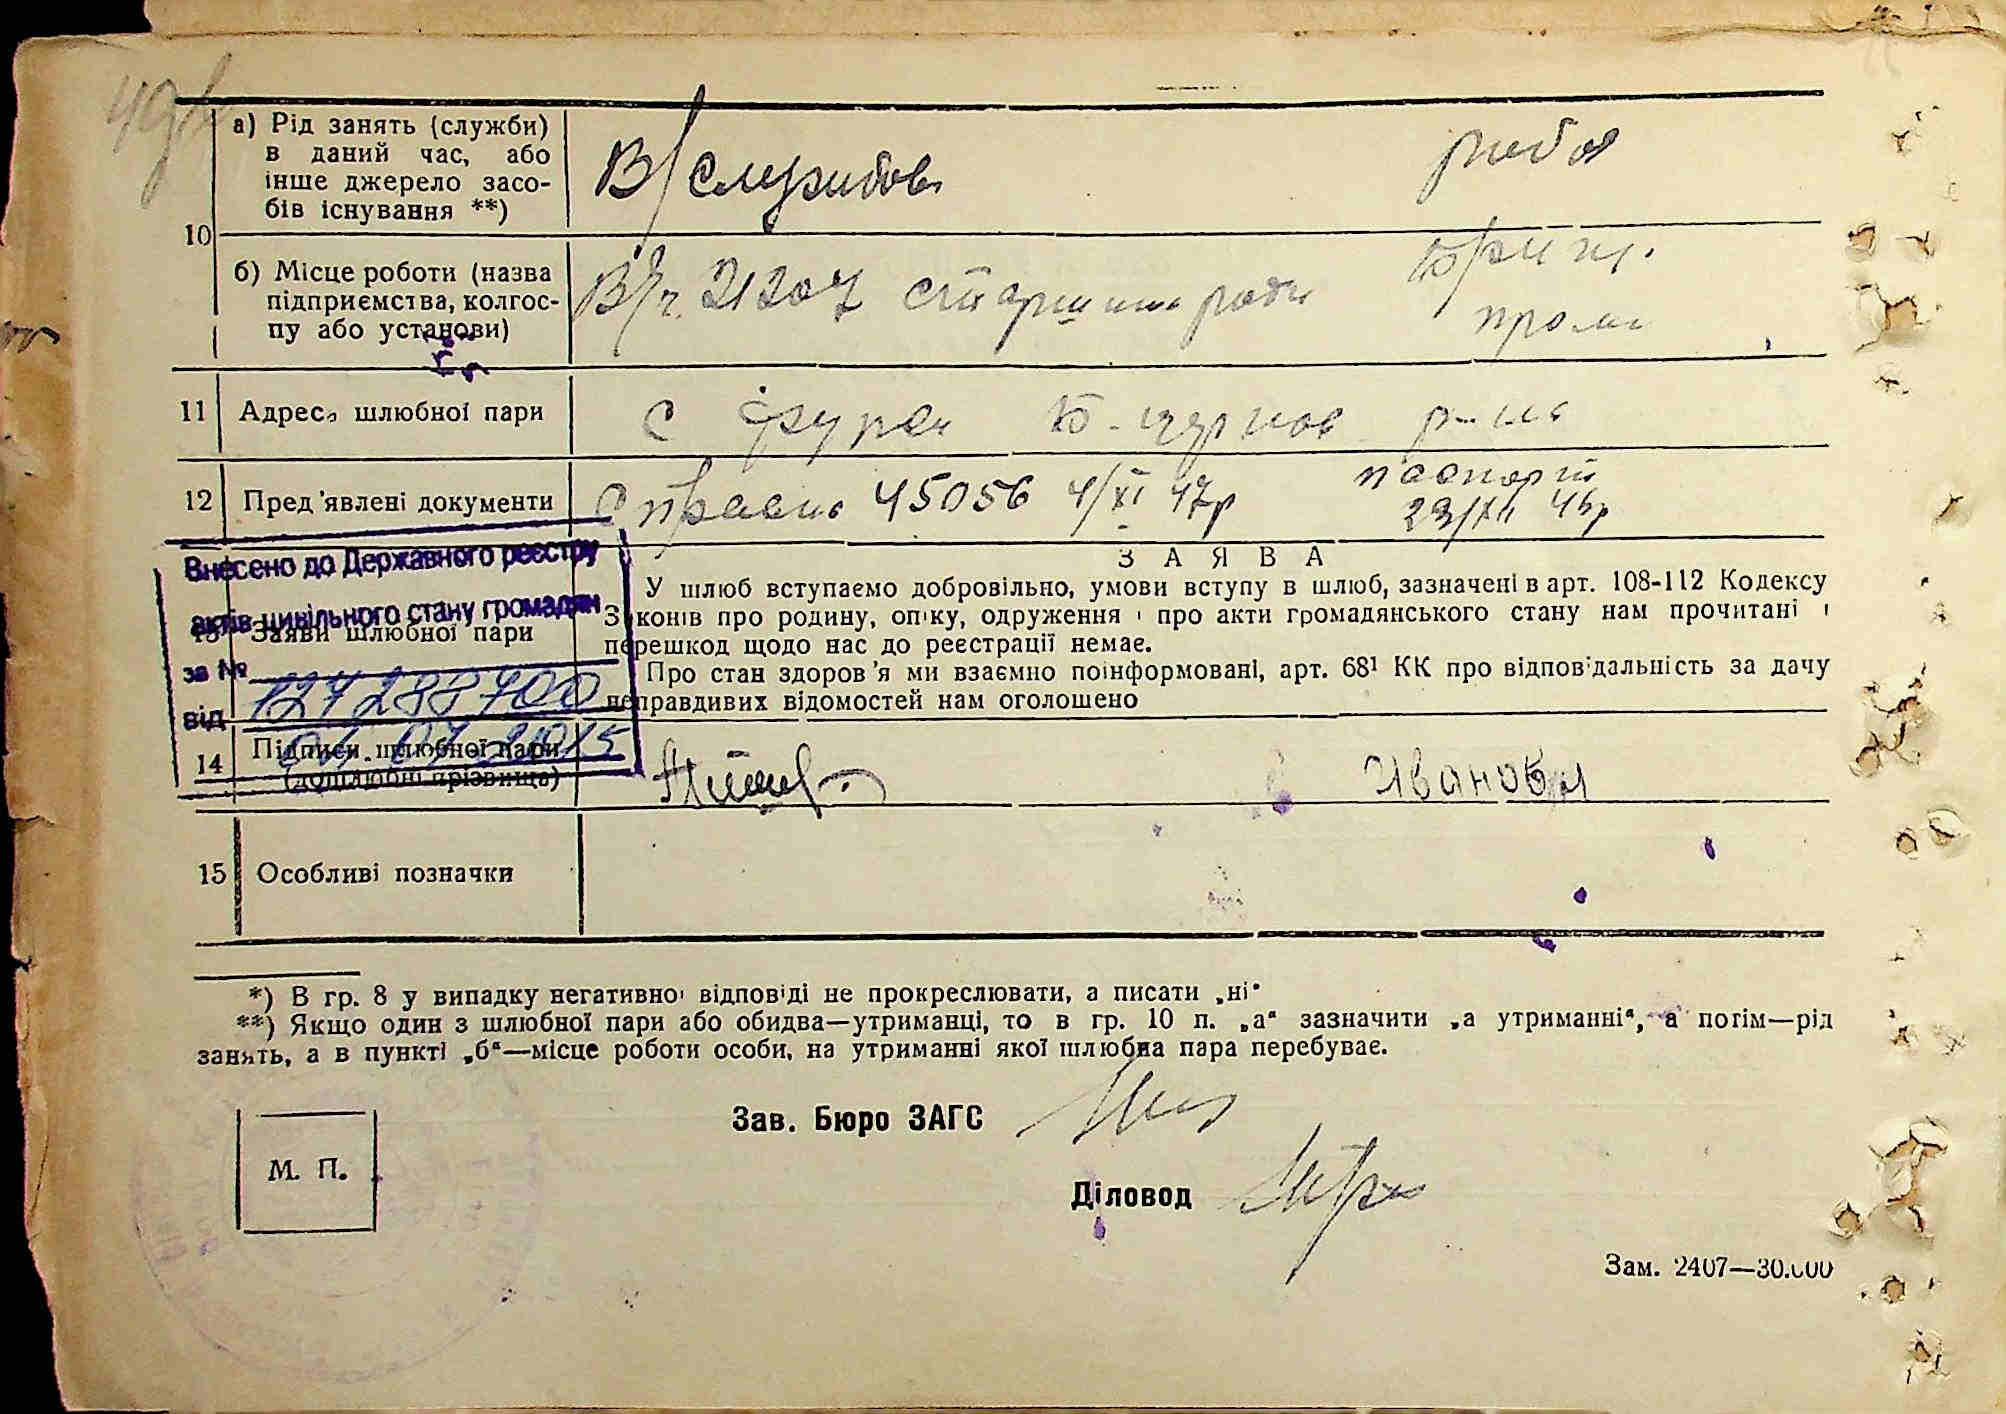 а) Рід занять (служби)
в даний час, або
інше джерело засо-
бів існування **)
В/служибов
10
б) Місце роботи (назва
підприємства, колгос-
пу або установи)
В/ч. 21207 старшина
11 Адреса шлюбної пари
с
12 Пред'явлені документи
Справка 45056 4/XI 47р
паспорт
23/XII 45р
Внесено до Державного реєстру
актів цивільного стану громадян
за №
127288700
від
2015
13 Заяви шлюбної пари
З А Я В А
У шлюб вступаємо добровільно, умови вступу в шлюб, зазначені в арт. 108-112 Кодексу
Законів про родину, опіку, одруження і про акти громадянського стану нам прочитані і
перешкод щодо нас до реєстрації немає.
Про стан здоров'я ми взаємно поінформовані, арт. 68¹ КК про відповідальність за дачу
неправдивих відомостей нам оголошено
14 Підписи шлюбної пари
(дошлюбні прізвища)
Иванова
15 Особливі позначки
*) В гр. 8 у випадку негативної відповіді не прокреслювати, а писати „ні“
**) Якщо один з шлюбної пари або обидва—утриманці, то в гр. 10 п. „а“ зазначити „а утриманні“, а потім—рід
занять, а в пункті „б“—місце роботи особи, на утриманні якої шлюбна пара перебуває.
Зав. Бюро ЗАГС
М. П.
Діловод
Зам. 2407—30.000